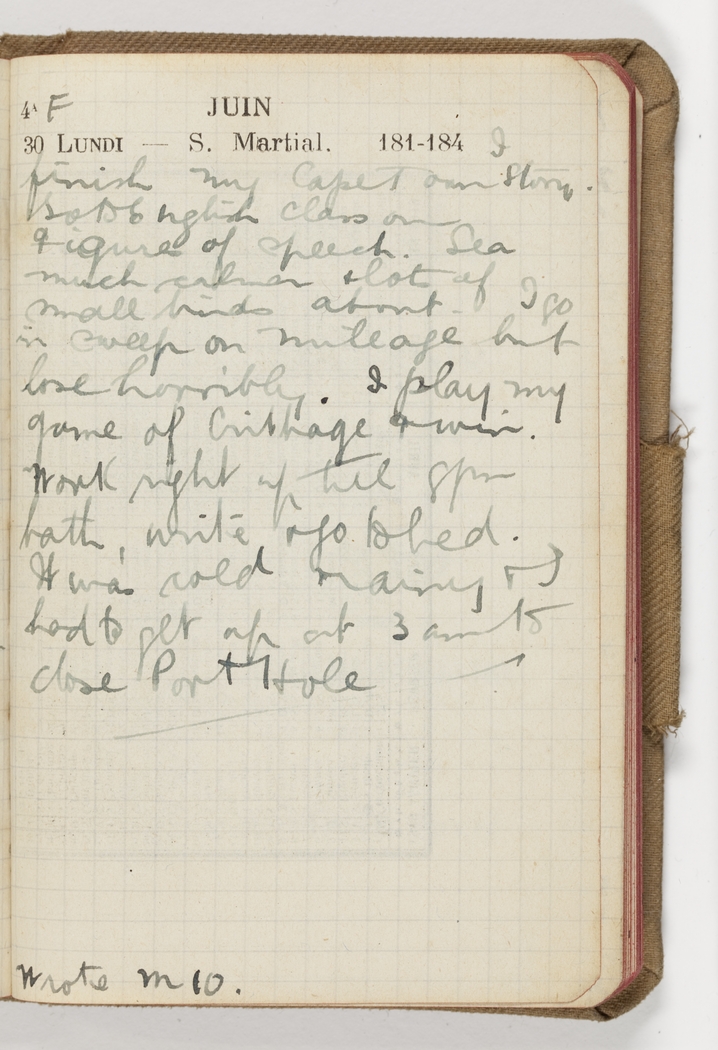 4ᴬ F JUIN
30 LUNDI — S. Martial. 181-184 I
finish my Cape Town Story.
Go to English class on
Figures of speech. Sea
much calmer & lots of
small birds about. I go
in sweep on mileage but
lose horribly. I play my
game of Cribbage & win.
Work right up till 8pm
bath, write & go to bed.
It was cold rainy & I
had to get up at 3 am to
close Port Hole
Wrote M 10.